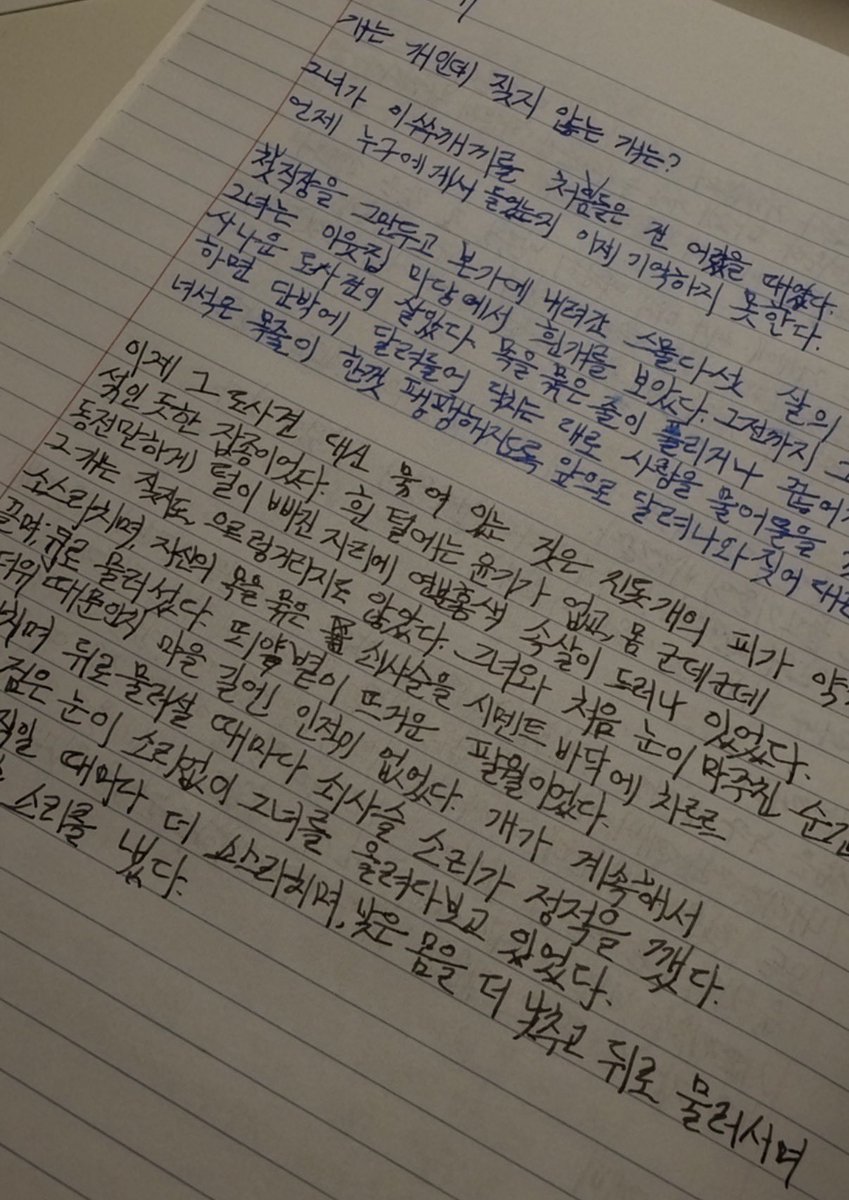 7
개는 개인데 짖지 않는 개는?
그녀가 이 수수께끼를 처음 들은 건 어렸을 때였다.
언제 누구에게서 들었는지 이제 기억하지 못한다.
첫 직장을 그만두고 본가에 내려간 스물다섯 살의
그녀는 이웃집 마당에서 흰 개를 보았다. 그전까지 그
사나운 도사견이 살았다. 목을 묶은 줄이 풀리거나 끊어
하면 단박에 달려들어 닥치는 대로 사람을 물어뜯을
녀석은 목줄이 한껏 팽팽해지도록 앞으로 달려나와 짖어 대
이제 그 도사견 대신 묶여 있는 것은 진돗개의 피가 약
섞인 듯한 잡종이었다. 흰 털에는 윤기가 없고, 몸 군데군데
동전만하게 털이 빠진 자리에 연분홍색 속살이 드러나 있었다.
그 개는 짖지도, 으르렁거리지도 않았다. 그녀와 처음 눈이 마주친 순간
소스라치며, 자신의 목을 묶은 쇠사슬을 시멘트 바닥에 차르르
끌며, 뒤로 물러섰다. 뙤약볕이 뜨거운 팔월이었다.
더위 때문인지 마을 길엔 인적이 없었다. 개가 계속해서
치며 뒤로 물러설 때마다 쇠사슬 소리가 정적을 깼다.
검은 눈이 소리없이 그녀를 올려다보고 있었다.
직일 때마다 더 소스라치며, 낮은 몸을 더 낮추고 뒤로 물러서며
소리를 냈다.